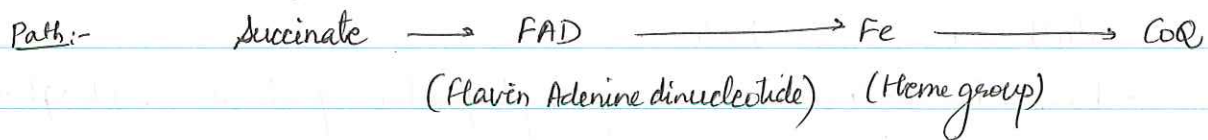 Path:- Succinate → FAD → Fe → CoQ
(Flavin Adenine dinucleotide) (Heme group)